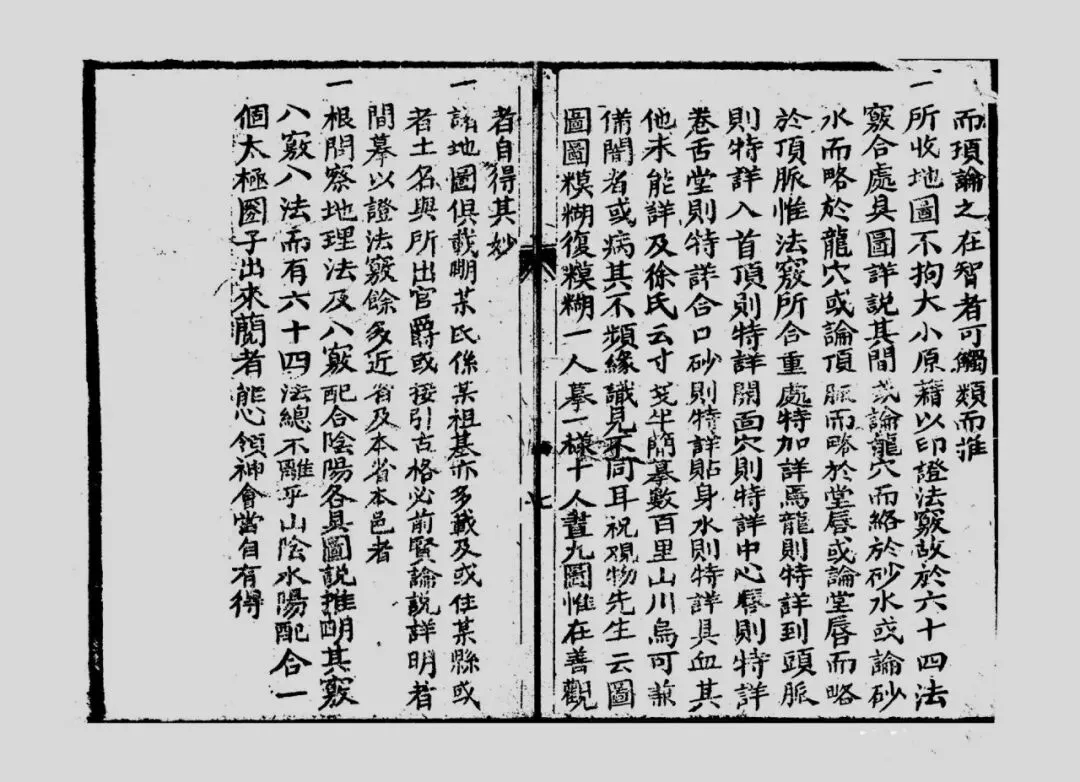 而瑣論之在智者可觸類而推
一所收地圖不拘大小原藉以印證法竅故於六十四法
竅合處具圖詳說其間或論龍穴而絡於砂水或論砂
水而略於龍穴或論頂脈而略於堂唇或論堂唇而略
於頂脈惟法竅所合重處特加詳焉龍則特詳到頭脈
則特詳入首頂則特詳開面穴則特詳中心唇則特詳
卷舌堂則特詳合口砂則特詳貼身水則特詳具血其
他未能詳及徐氏云寸箋半簡摹數百里山川烏可兼
備閱者或病其不頻緣識見不同耳祝硯物先生云圖
圖圖糢糊復糢糊一人摹一樣十人畫九圖惟在善觀
者自得其妙
一諸地圖俱載明某氏係某祖基亦多載及或住某縣或
者土名與所出官爵或接引古格必前賢論說詳明者
間摹以證法竅餘多近省及本省本邑者
一根問察地理法及八竅配合陰陽各具圖說推明其竅
八竅八法而有六十四法總不離乎山陰水陽配合一
個太極圈子出來蘭者能心領神會當自有得
七